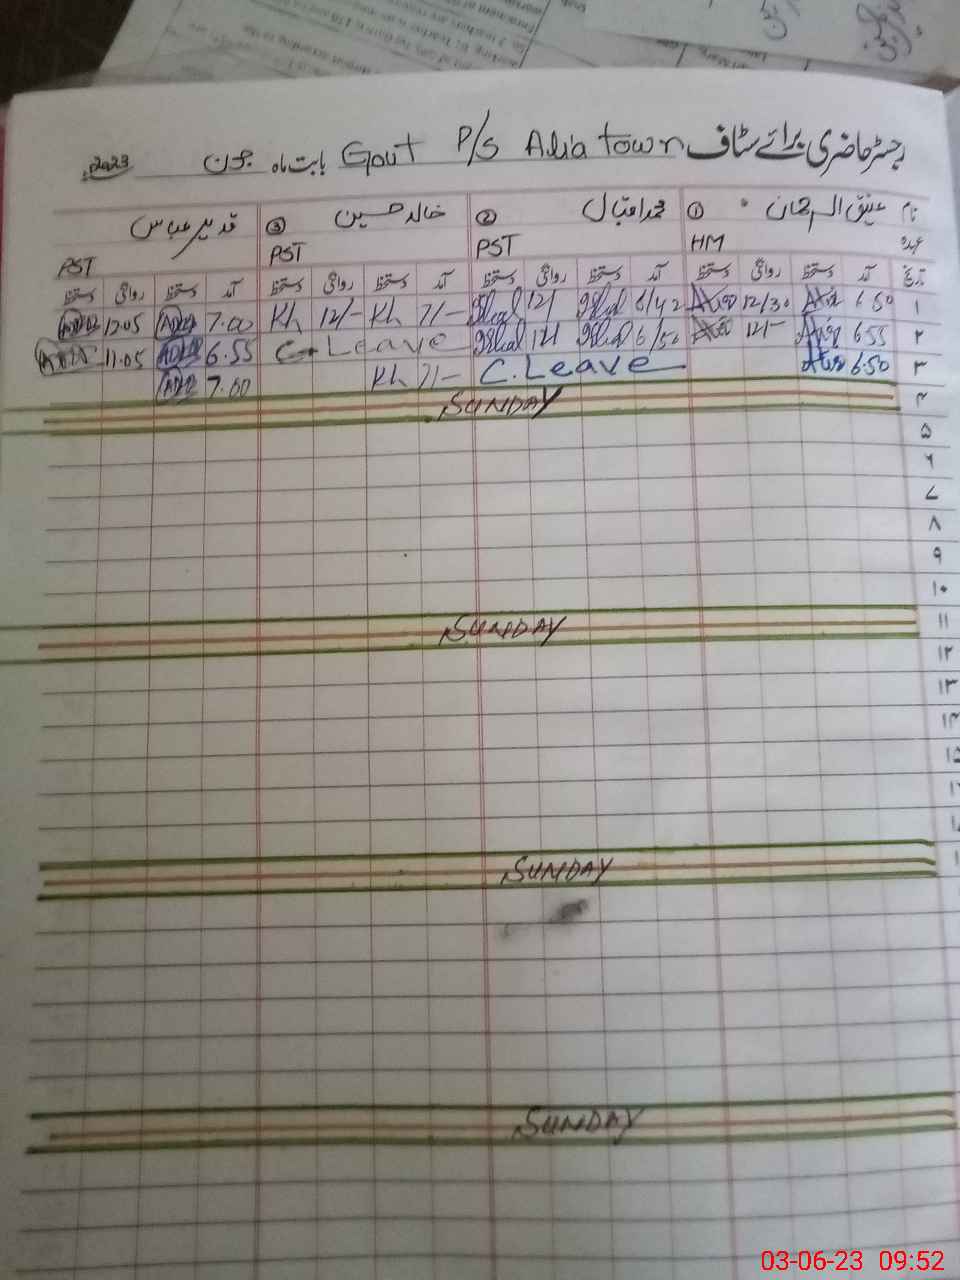 رجسٹر حاضری برائے سٹاف Govt P/S Alia town بابت ماہ جون 2023
نام عتیق الرحمان ① محمد اقبال ② خالد حسین ③ قدیر عباس
عہدہ HM PST PST PST
تاریخ آمد دستخط روانگی دستخط آمد دستخط روانگی دستخط آمد دستخط روانگی دستخط آمد دستخط روانگی دستخط
۱ 6.50 12/30 6/42 12/ 7/- Kh 12/- Kh 7.00 12.05
۲ 6.55 12/- 6/50 12/ C. Leave 6.55 11.05
۳ 6.50 C. Leave 7/- Kh 7.00
۴ SUNDAY
۵
۶
۷
۸
۹
۱۰
۱۱ SUNDAY
۱۲
۱۳
۱۴
۱۵
SUNDAY
SUNDAY
03-06-23 09:52